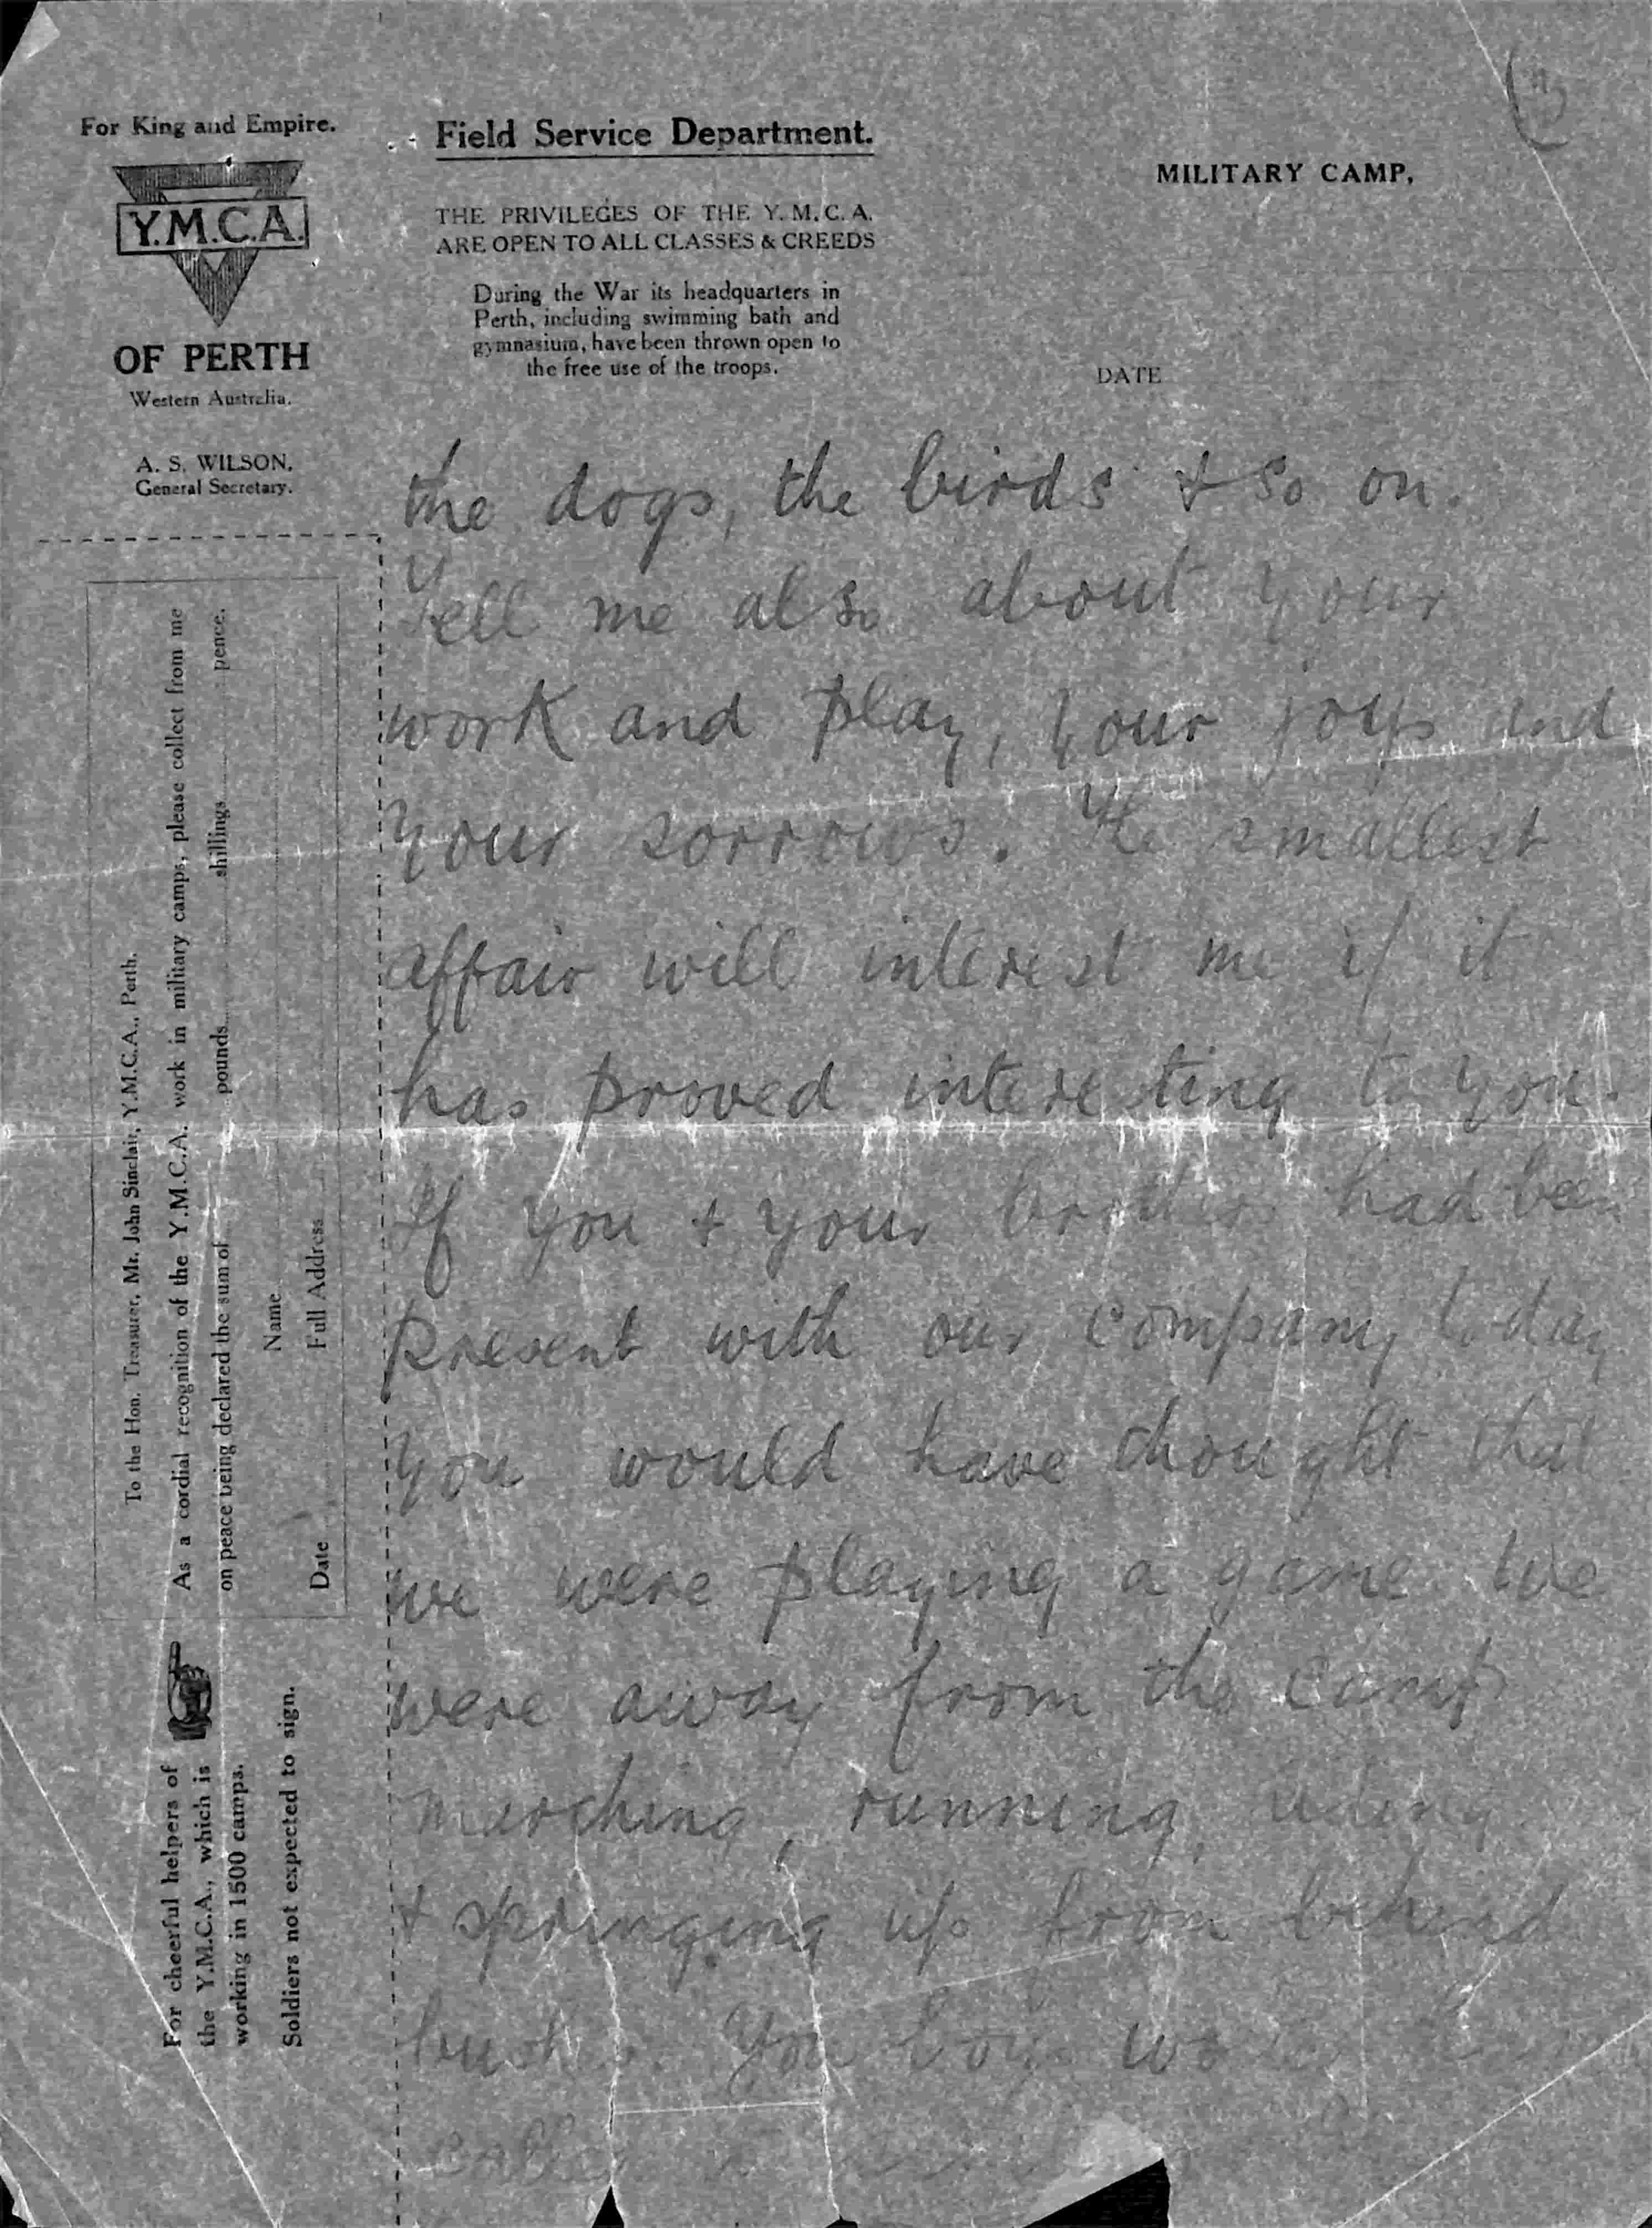 For King and Empire.
Y.M.C.A.
OF PERTH
Western Australia.
A. S. WILSON,
General Secretary.
Field Service Department.
THE PRIVILEGES OF THE Y. M. C. A.
ARE OPEN TO ALL CLASSES & CREEDS
During the War its headquarters in
Perth, including swimming bath and
gymnasium, have been thrown open to
the free use of the troops.
MILITARY CAMP,
DATE
the dogs, the birds & so on.
Tell me also about your
work and play, your joys and
your sorrows. The smallest
affair will interest me if it
has proved interesting to you.
If you & your brother had been
present with our company today
you would have thought that
we were playing a game. We
were away from the camp
marching, running,
& springing up from behind
bushes. You boys
To the Hon. Treasurer, Mr. John Sinclair, Y.M.C.A., Perth.
As a cordial recognition of the Y.M.C.A. work in military camps, please collect from me
on peace being declared the sum of pounds shillings pence.
Name
Full Address
Date
For cheerful helpers of
the Y.M.C.A., which is
working in 1500 camps.
Soldiers not expected to sign.